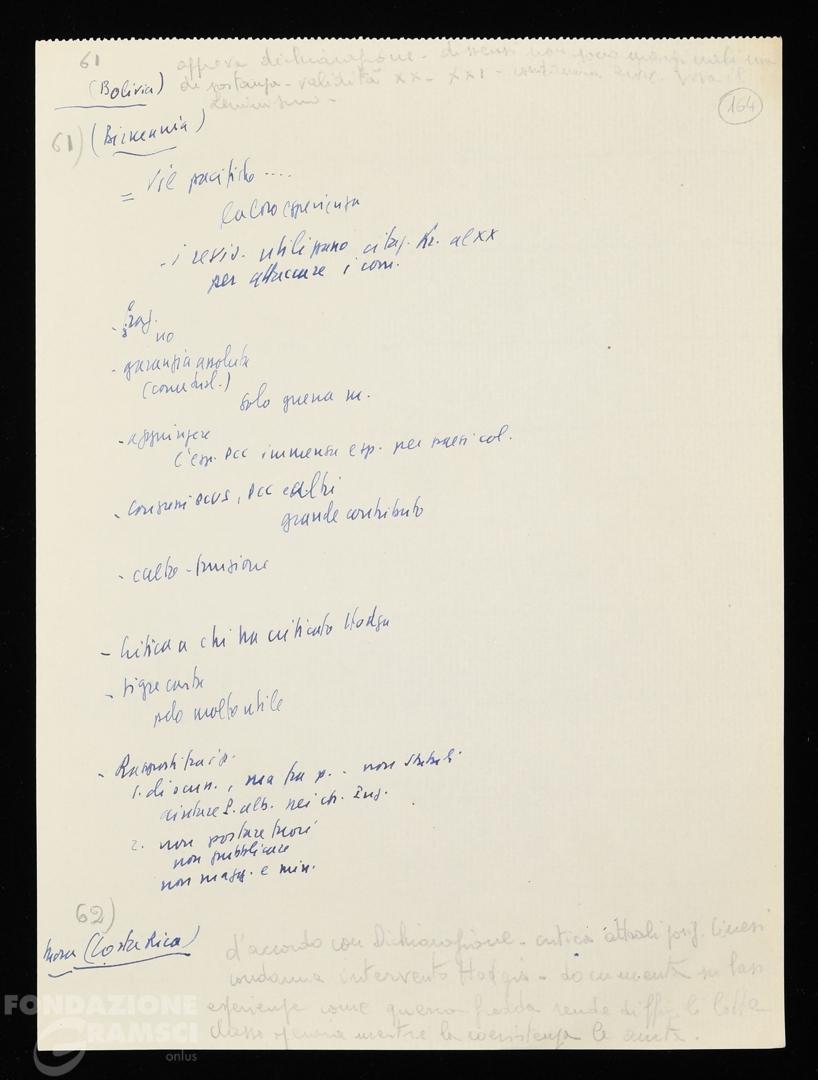 61
(Bolivia)
approva dichiarazione - dissensi non
di sostanza - validità XX - XXI -
164
61) (Birmania)
= Vie pacifiche ....
la loro esperienza
- i revis. utilizzano citaz. Kr. al XX
per attaccare i com.
no
- garanzia assoluta
solo guerra m.
- aggiungere
L'esp. PCC immensa esp. per paesi col.
- consensi PCUS, PCC e altri
grande contributo
- culto - frazione
- Critica a chi ha criticato Hodga
- tigre carta
solo molto utile
- Rapporti tra i p.
1. discuss., ma tra p. - non statali
aiutare P. alb. nei ch. Zug.
2. non portare fuori
non pubblicare
non magg. e min.
62)
Mora (Costa Rica)
d'accordo con Dichiarazione - critica attuali posiz. Cinesi
condanna intervento Hodgia - documenta su base
esperienze come guerra fredda rende diffic. le lotta
classe operaia mentre la coesistenza le aiuta.
FONDAZIONE
GRAMSCI
onlus